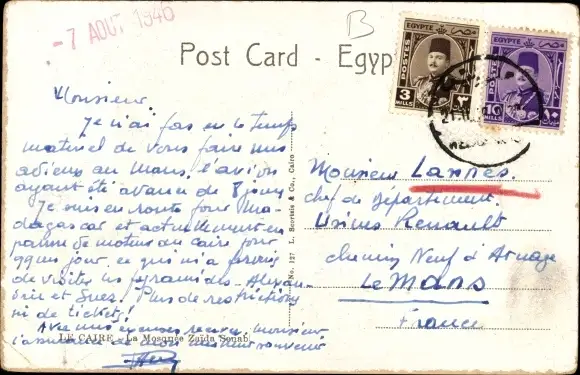 -7 AOUT 1946
B
Post Card - Egyp
EGYPTE
POSTES
3
MILLS
٣
EGYPTE
POSTES
10
MILLS
١٠
Monsieur
Je n'ai pas eu le temps
matériel de vous faire mes
adieux au Mans, l'avion
ayant été avancé de 8 jours
Je suis en route pour Ma-
dagascar et actuellement en
panne de moteur au Caire pour
jours, ce qui m'a permis
de visiter les pyramides - Alexan-
drie et Suez. Plus de restrictions
ni de tickets!
Avec mes excuses recevez Monsieur
l'assurance de mon meilleur souvenir
LE CAIRE - La Mosquée Zaïda Senab
No. 127 L. Scortzis & Co., Caire
Monsieur Lannes.
chef de Département.
Usines Renault
chemin Neuf d'Arnage
Le Mans
France